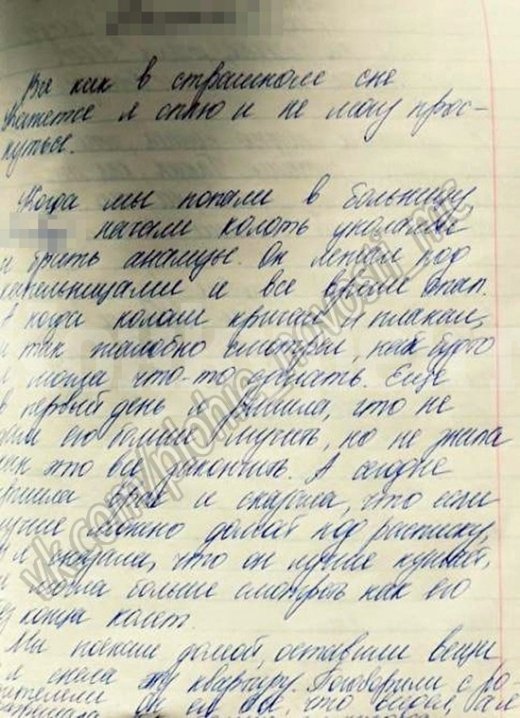 Все как в страшном сне
кажется я сплю и не могу прос-
нуться.
Когда мы попали в больницу,
начали колоть уколами
и брать анализы. Он лежал под
капельницами и все время спал.
А когда кололи кричал и плакал,
и так жалобно смотрел, как будто
я могла что-то сделать. Еще
в первый день я решила, что не
дам его больше мучить, но не знала
как это все закончить. А сегодня
пришла врач и сказала, что если
лучше можно домой под расписку,
я сказала, что он лучше кушает,
не могла больше смотреть как его
без конца колют.
Мы поехали домой, оставили вещи
я сняла эту квартиру. Поговорили с ро-
дителями Он ел что
vk.com/plohie_novosti_me